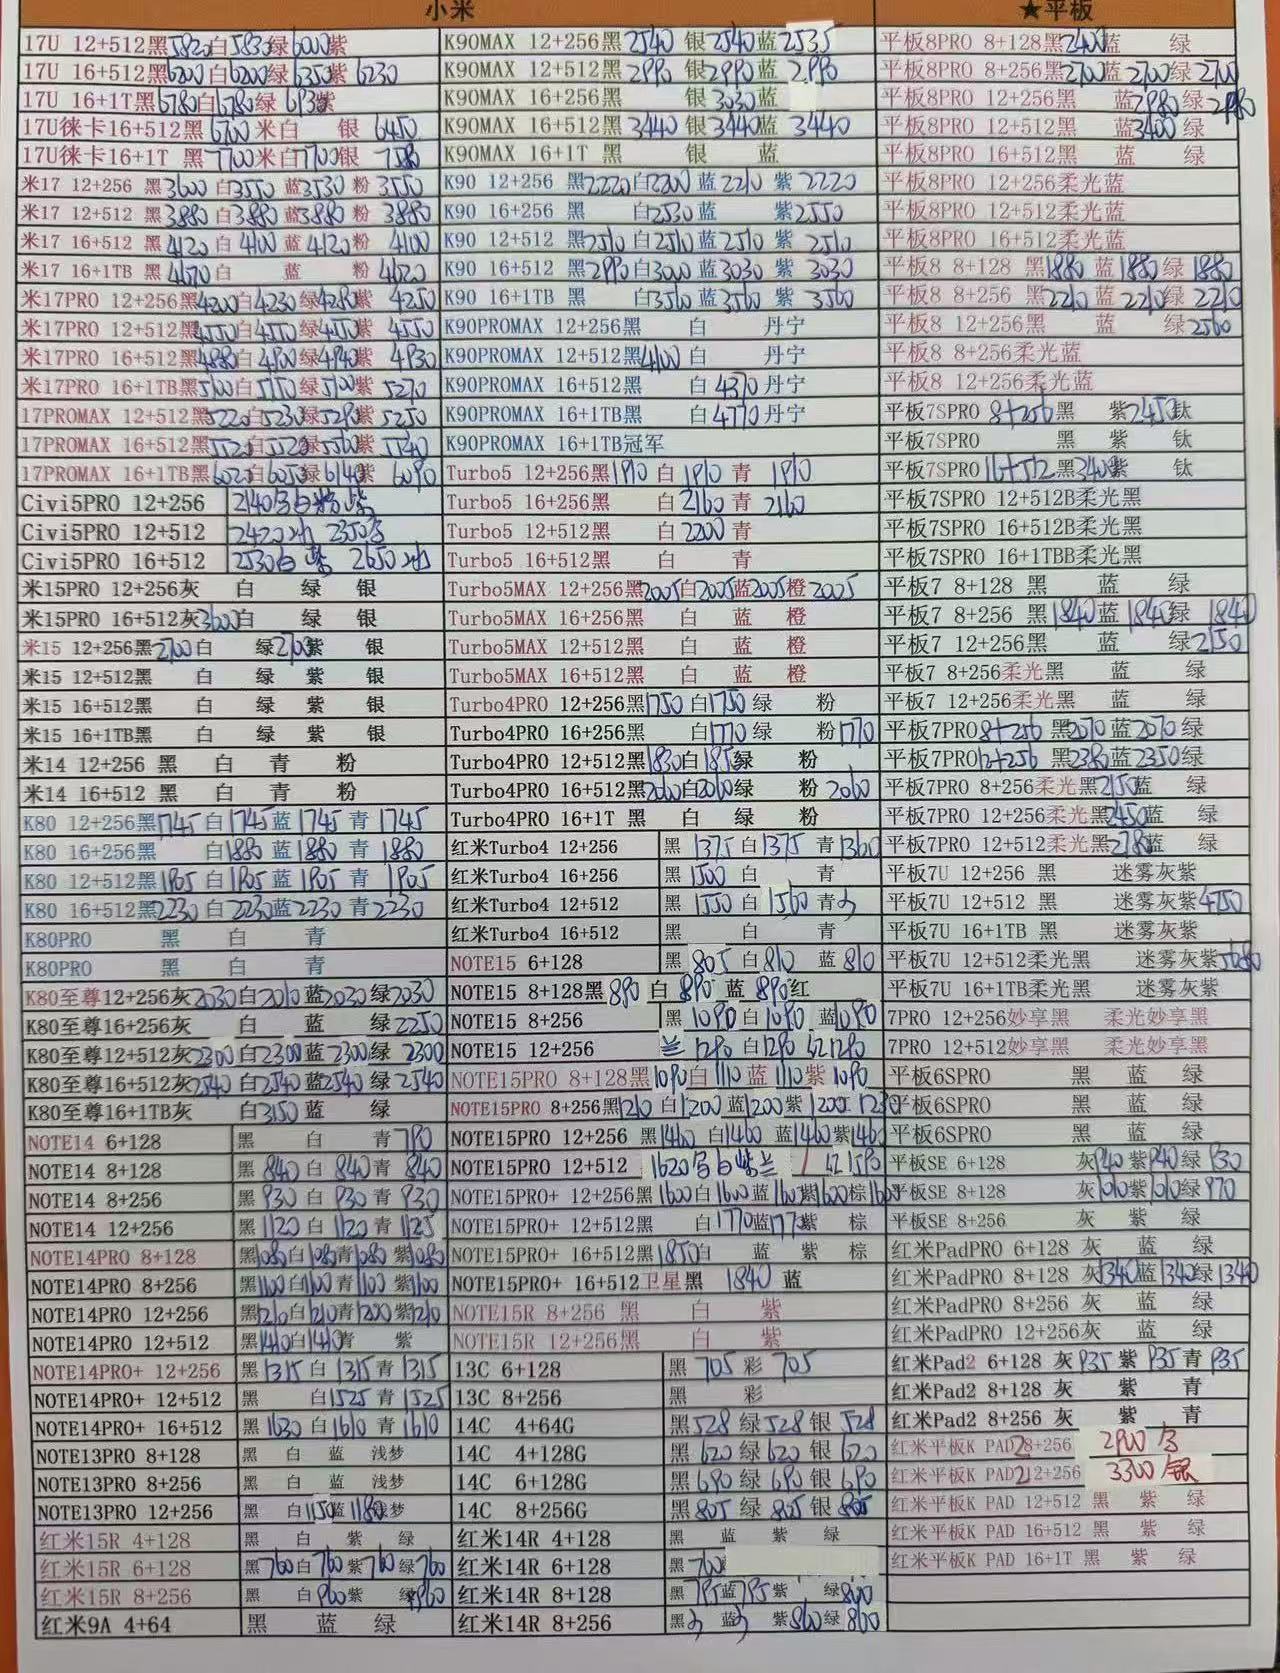 小米
17U 12+512黑5820白5830绿6000紫
17U 16+512黑6200白6200绿6350紫 6230
17U 16+1T黑6780白6780绿 6P3紫
17U徕卡16+512黑6700米白 银 6450
17U徕卡16+1T 黑7700米白7700银 7580
米17 12+256 黑3600白3550 蓝3530 粉 3550
米17 12+512 黑3880白3880蓝3880 粉 3880
米17 16+512 黑4120白 4100 蓝4120粉 4100
米17 16+1TB 黑4670白 蓝 粉4620
米17PRO 12+256黑4200白4230绿4280紫 4250
米17PRO 12+512黑4550白4550绿4550紫 4550
米17PRO 16+512黑4880白4900绿4940紫 4930
米17PRO 16+1TB黑5100白5150绿5100紫 5270
17PROMAX 12+512黑5220白5230绿5290紫 5250
17PROMAX 16+512黑5520白5520绿5560紫 5540
17PROMAX 16+1TB黑6020白6050绿6140紫 6090
Civi5PRO 12+256 2140乌白粉紫
Civi5PRO 12+512 2420冰 2350
Civi5PRO 16+512 2530白紫 2650冰
米15PRO 12+256灰 白 绿 银
米15PRO 16+512灰3600白 绿 银
米15 12+256黑2700白 绿2700紫 银
米15 12+512黑 白 绿 紫 银
米15 16+512黑 白 绿 紫 银
米15 16+1TB黑 白 绿 紫 银
米14 12+256 黑 白 青 粉
米14 16+512 黑 白 青 粉
K80 12+256黑1745白1745蓝 1745 青 1745
K80 16+256黑 白1880 蓝 1880 青 1880
K80 12+512黑1905白1905蓝 1905 青 1905
K80 16+512黑2230白2230蓝2230 青2230
K80PRO 黑 白 青
K80PRO 黑 白 青
K80至尊12+256灰2030白2010蓝2030绿2030
K80至尊16+256灰 白 蓝 绿2250
K80至尊12+512灰2300白2300蓝2300绿 2300
K80至尊16+512灰2540白2540蓝2540绿2540
K80至尊16+1TB灰 白3150蓝 绿
NOTE14 6+128 黑 白 青790
NOTE14 8+128 黑 840白 840青 840
NOTE14 8+256 黑 930白 930青 930
NOTE14 12+256 黑1120白1120青1125
NOTE14PRO 8+128 黑1080白1080青1080 紫1080
NOTE14PRO 8+256 黑1100白1100青1100 紫1100
NOTE14PRO 12+256 黑1210白1210青1200紫1210
NOTE14PRO 12+512 黑1410白1410青 紫
NOTE14PRO+ 12+256 黑1315白1315青1315
NOTE14PRO+ 12+512 黑 白1525青1525
NOTE14PRO+ 16+512 黑1630白1610青1610
NOTE13PRO 8+128 黑 白 蓝 浅梦
NOTE13PRO 8+256 黑 白 蓝 浅梦
NOTE13PRO 12+256 黑 白1150蓝 1180浅梦
红米15R 4+128 黑 白 紫 绿
红米15R 6+128 黑760白760紫760绿760
红米15R 8+256 黑 白960紫 绿960
红米9A 4+64 黑 蓝 绿
K90MAX 12+256黑2540 银2540蓝2535
K90MAX 12+512黑2990 银2990蓝 2990
K90MAX 16+256黑 银3030蓝
K90MAX 16+512黑3440银3440蓝 3440
K90MAX 16+1T 黑 银 蓝
K90 12+256 黑2220白2200 蓝2210 紫 2220
K90 16+256 黑 白2530蓝 紫2550
K90 12+512 黑2510白2510蓝2510 紫 2510
K90 16+512 黑2990白3000蓝3030 紫 3030
K90 16+1TB 黑 白3510蓝3560 紫 3560
K90PROMAX 12+256黑 白 丹宁
K90PROMAX 12+512黑4100白 丹宁
K90PROMAX 16+512黑 白4370丹宁
K90PROMAX 16+1TB黑 白4770丹宁
K90PROMAX 16+1TB冠军
Turbo5 12+256黑1910白1910青 1910
Turbo5 16+256黑 白2160青 2160
Turbo5 12+512黑 白2200青
Turbo5 16+512黑 白 青
Turbo5MAX 12+256黑2005白2005蓝2005橙 2005
Turbo5MAX 16+256黑 白 蓝 橙
Turbo5MAX 12+512黑 白 蓝 橙
Turbo5MAX 16+512黑 白 蓝 橙
Turbo4PRO 12+256黑1750白1750 绿 粉
Turbo4PRO 16+256黑 白1770绿 粉1770
Turbo4PRO 12+512黑1830白185绿 粉
Turbo4PRO 16+512黑2060白2060绿 粉 2060
Turbo4PRO 16+1T 黑 白 绿 粉
红米Turbo4 12+256 黑 1375白1375 青1360
红米Turbo4 16+256 黑 1500 白 青
红米Turbo4 12+512 黑 1550 白1560青
红米Turbo4 16+512 黑 白 青
NOTE15 6+128 黑 805白810 蓝 810
NOTE15 8+128黑890 白 890蓝 890红
NOTE15 8+256 黑 1090白1090 蓝1090
NOTE15 12+256 兰 1290白1290红1290
NOTE15PRO 8+128黑1090白1110蓝1110紫1090
NOTE15PRO 8+256黑1210白1200蓝1200紫1200
NOTE15PRO 12+256 黑1460 白1460 蓝1460紫1460
NOTE15PRO 12+512 1620乌白紫兰 / 红1590
NOTE15PRO+ 12+256黑1600白1600蓝160紫1600棕160
NOTE15PRO+ 12+512黑 白1770蓝177紫 棕
NOTE15PRO+ 16+512黑1850白 蓝 紫 棕
NOTE15PRO+ 16+512卫星黑 1840 蓝
NOTE15R 8+256 黑 白 紫
NOTE15R 12+256黑 白 紫
13C 6+128 黑 705 彩 705
13C 8+256 黑 彩
14C 4+64G 黑528 绿528银 528
14C 4+128G 黑620绿620 银620
14C 6+128G 黑690绿 690 银690
14C 8+256G 黑805绿 805银 805
红米14R 4+128 黑 蓝 紫 绿
红米14R 6+128 黑760
红米14R 8+128 黑795蓝795紫 绿800
红米14R 8+256 黑 蓝 紫860绿860
★平板
平板8PRO 8+128黑2400蓝 绿
平板8PRO 8+256黑2700蓝2700绿 2700
平板8PRO 12+256黑 蓝2980绿2980
平板8PRO 12+512黑 蓝3400绿
平板8PRO 16+512黑 蓝 绿
平板8PRO 12+256柔光蓝
平板8PRO 12+512柔光蓝
平板8PRO 16+512柔光蓝
平板8 8+128 黑1880 蓝1880绿 1880
平板8 8+256 黑2210 蓝2210绿 2210
平板8 12+256黑 蓝 绿2560
平板8 8+256柔光蓝
平板8 12+256柔光蓝
平板7SPRO 8+256黑 紫2450钛
平板7SPRO 黑 紫 钛
平板7SPRO 16+512黑340紫 钛
平板7SPRO 12+512B柔光黑
平板7SPRO 16+512B柔光黑
平板7SPRO 16+1TBB柔光黑
平板7 8+128 黑 蓝 绿
平板7 8+256 黑1840蓝1840绿 1840
平板7 12+256黑 蓝 绿2150
平板7 8+256柔光黑 蓝 绿
平板7 12+256柔光黑 蓝 绿
平板7PRO8+256 黑2070蓝2070绿
平板7PRO12+256 黑2380蓝2350绿
平板7PRO 8+256柔光黑2150蓝 绿
平板7PRO 12+256柔光黑2450蓝 绿
平板7PRO 12+512柔光黑278蓝 绿
平板7U 12+256 黑 迷雾灰紫
平板7U 12+512 黑 迷雾灰紫4750
平板7U 16+1TB 黑 迷雾灰紫
平板7U 12+512柔光黑 迷雾灰紫5680
平板7U 16+1TB柔光黑 迷雾灰紫
7PRO 12+256妙享黑 柔光妙享黑
7PRO 12+512妙享黑 柔光妙享黑
平板6SPRO 黑 蓝 绿
平板6SPRO 黑 蓝 绿
平板6SPRO 黑 蓝 绿
平板SE 6+128 灰940紫940绿 930
平板SE 8+128 灰1010紫1010绿970
平板SE 8+256 灰 紫 绿
红米PadPRO 6+128 灰 蓝 绿
红米PadPRO 8+128 灰1340蓝1340绿1340
红米PadPRO 8+256 灰 蓝 绿
红米PadPRO 12+256灰 蓝 绿
红米Pad2 6+128 灰935 紫 935青 935
红米Pad2 8+128 灰 紫 青
红米Pad2 8+256 灰 紫 青
红米平板K PAD28+256 2900
红米平板K PAD212+256 3300银
红米平板K PAD 12+512 黑 紫 绿
红米平板K PAD 16+512 黑 紫 绿
红米平板K PAD 16+1T 黑 紫 绿